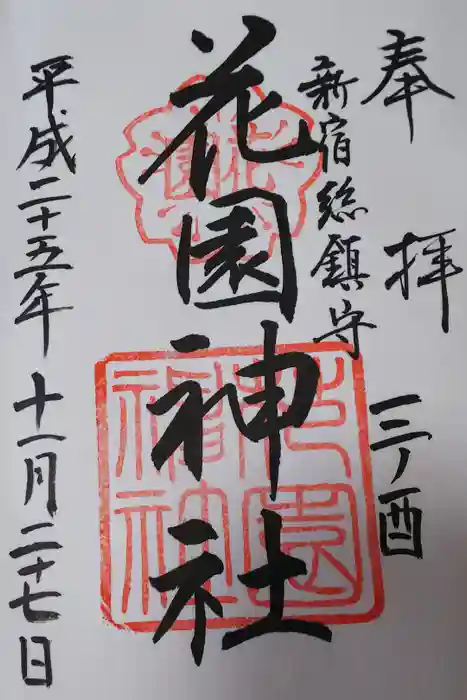 奉拝 三ノ酉
新宿総鎮守
花園神社
平成二十五年十一月二十七日
花園神社